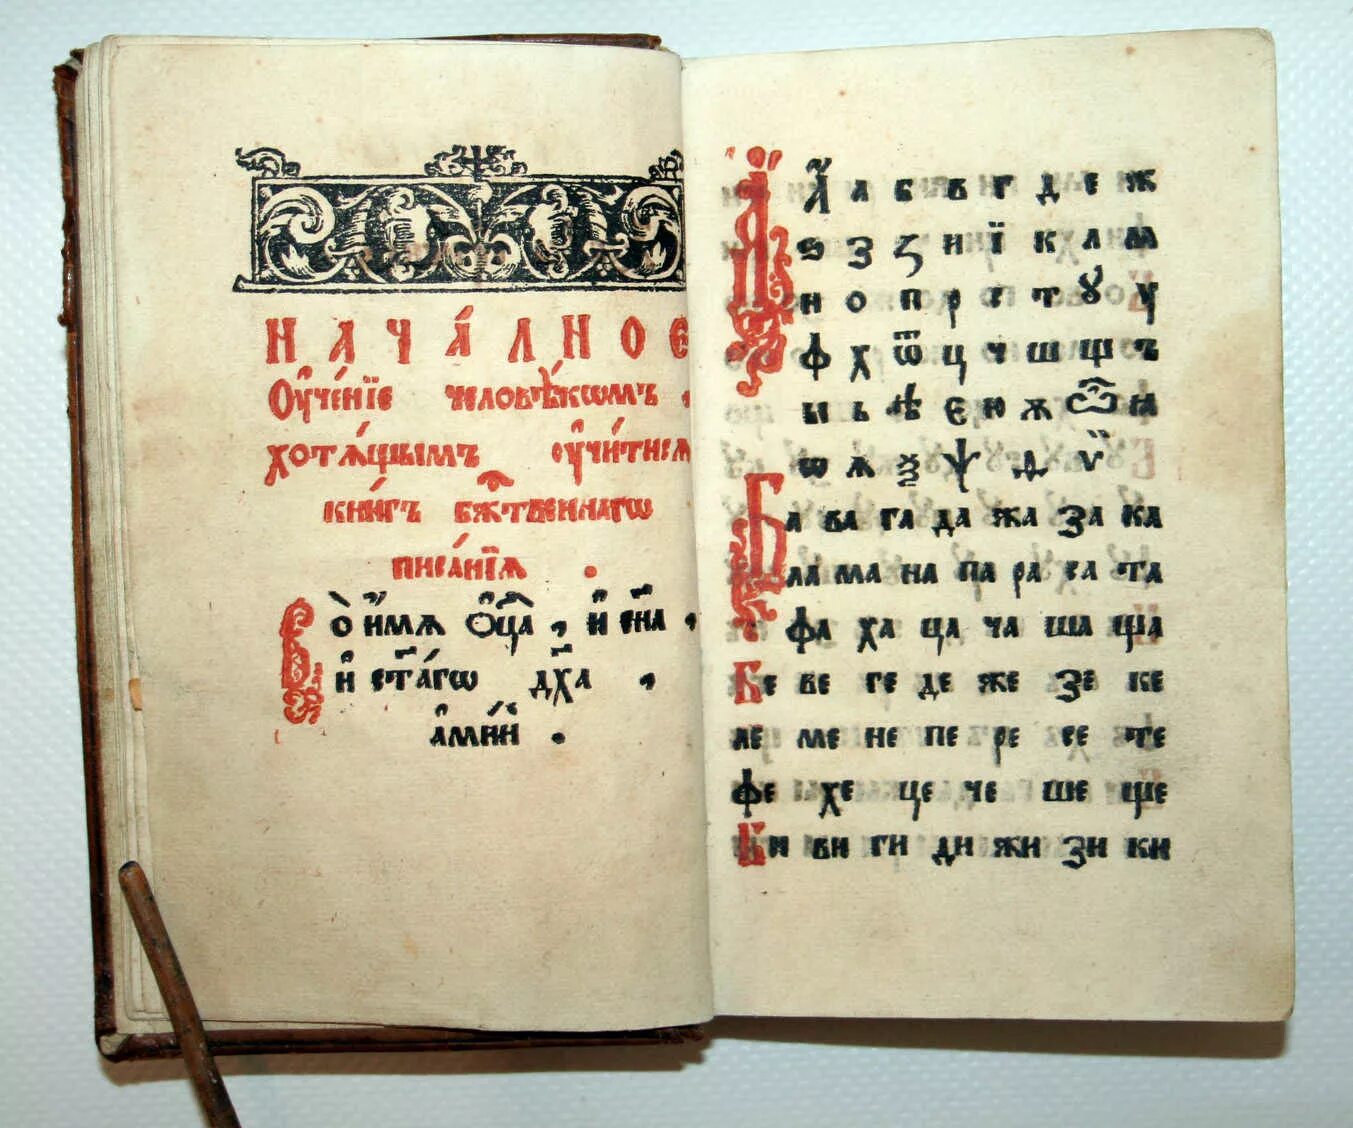 НАЧА́ЛНОЕ
Оу҆че́нїе человѣ́кѡмъ ,
хотѧ́щымъ оу҆чи́тисѧ
кни́гъ бж҃твеннагѡ
писа́нїѧ .
Во̀ и҆́мѧ Ѻ҆ц҃а , и҆ сн҃а ,
и҆ ст҃а́гѡ дх҃а ,
а҆ми́нь .
А҆ а б в г д е ж
ѕ з ꙁ и ї к л м
н о п р с т ꙋ у
ф х ѿ ц ч ш щ ъ
ы ь ѣ є ю ѫ ѽ ꙗ
ѡ ѧ ѯ ѱ ѳ ѵ
Ба ва га да жа за ка
ла ма на па ра са та
фа ха ца ча ша ща
Бе ве ге де же зе ке
ле ме не пе ре се те
фе хе це че ше ще
Би ви ги ди жи зи ки